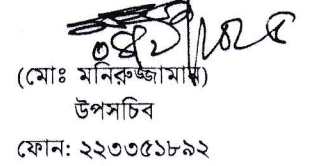 (মোঃ মনিরুজ্জামান)
উপসচিব
ফোন: ২২৩৩৫১৮৯২